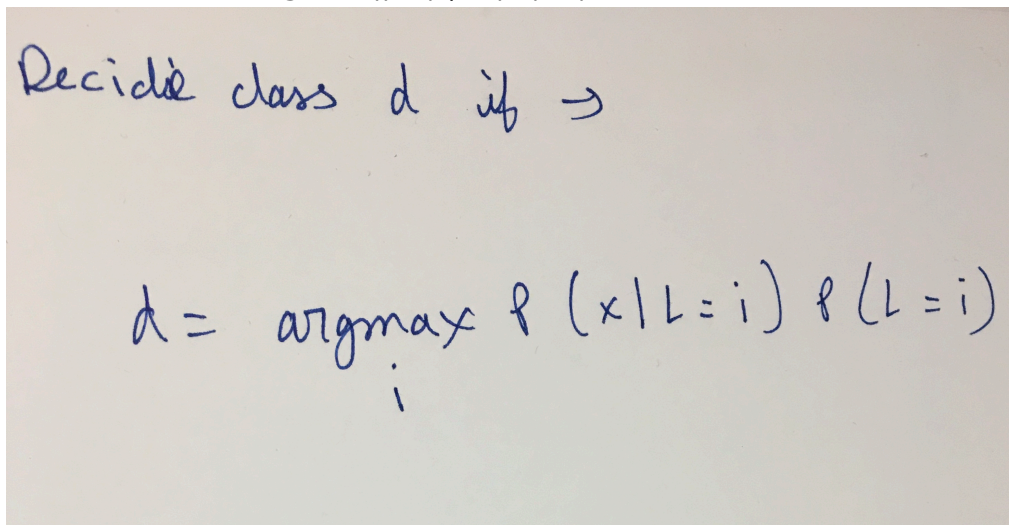 Decide class d if →
d = argmax P (x | L = i) P (L = i)
i